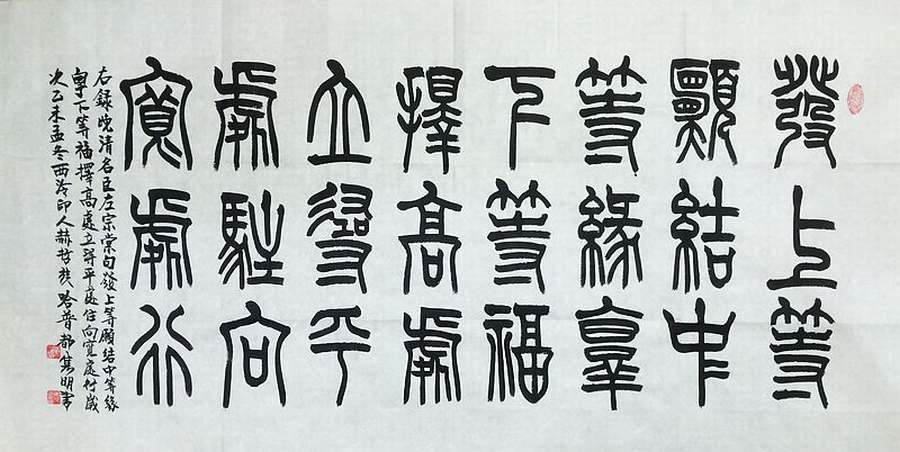 發上等
願結中
等緣享
下等福
擇高處
立尋平
處駐向
寬處行
右錄晚清名臣左宗棠句發上等願結中等緣
享下等福擇高處立尋平處住向寬處行歲
次乙未孟冬西泠印人赫哲族哈普都雋明書